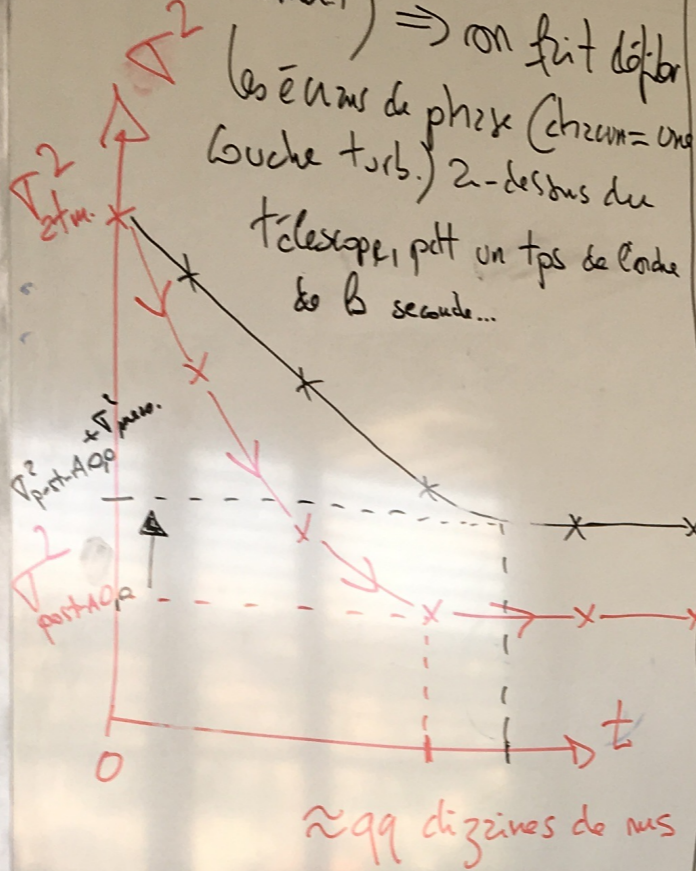 ) ⇒ on fait défiler
les écrans de phase (chacun = une
couche turb.) au-dessus du
télescope, pdt un tps de l'ordre
de la seconde...
σ²
σ²atm.
σ²post-AO,φ + σ²meso.
σ²post-AO,φ
0
t
≈ qq dizaines de ms